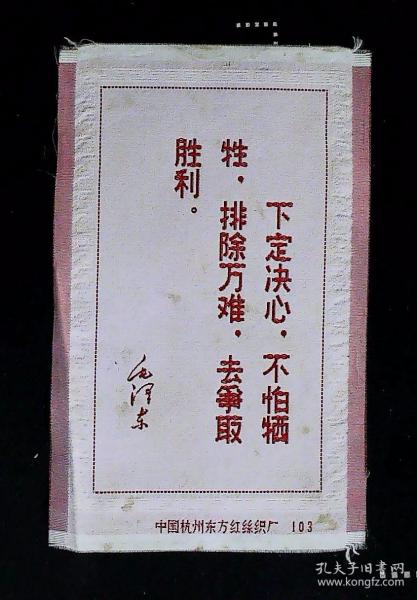 下定决心，不怕牺
牲，排除万难，去爭取
胜利。
毛泽东
中国杭州东方红丝织厂 103
孔夫子旧书网
www.kongfz.com